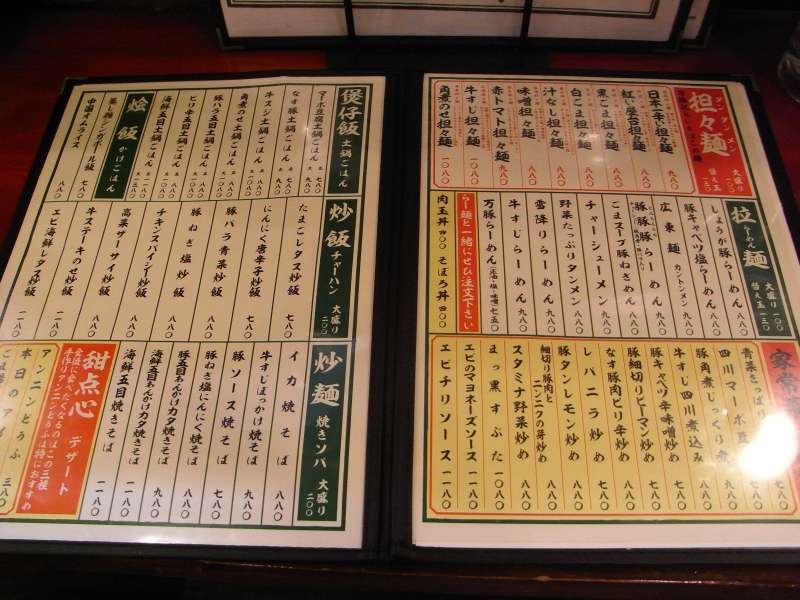 担々麺
タンタンメン
大盛り
替え玉
日本一辛い担々麺 九八〇
紅い屋台担々麺 八八〇
黒ごま担々麺 八八〇
白ごま担々麺 八八〇
汁なし担々麺 八八〇
味噌担々麺 九八〇
赤トマト担々麺 九八〇
牛すじ担々麺 一〇八〇
角煮のせ担々麺 一〇八〇
拉麺
らーめん
大盛り 一〇〇
替え玉 一三〇
しょうが豚らーめん 八八〇
豚キャベツ塩らーめん 八八〇
広東麺 カントンメン 九八〇
豚豚豚らーめん 九八〇
ごまスープ豚ねぎめん 八八〇
チャーシューメン 九八〇
野菜たっぷりタンメン 八八〇
雪降りらーめん 九八〇
牛すじらーめん 九八〇
万豚らーめん 七五〇
らー麺と一緒にぜひ注文下さい
肉玉丼 四〇〇 そぼろ丼 四〇〇
四川マーボ豆
豚角煮じっくり煮
牛すじ四川煮込み
豚キャベツ辛味噌炒め
豚細切りピーマン炒め
なす豚肉ピリ辛炒め
レバニラ炒め
豚タンレモン炒め
細切り豚肉と
ニンニクの芽炒め
スタミナ野菜炒め
まっ黒すぶた 一一〇〇
エビのマヨネーズソース 一一八〇
エビチリソース 一一八〇
煲仔飯 土鍋ごはん
マーボ豆腐土鍋ごはん 七八〇
なす豚土鍋ごはん
牛スジ土鍋ごはん
角煮のせ土鍋ごはん
豚バラ土鍋ごはん
ピリ辛豚土鍋ごはん
海鮮五目土鍋ごはん
烩飯 かけごはん
蒸し鶏シンガポール飯 七八〇
中国オムライス 八八〇
炒飯 チャーハン 大盛り 二〇〇
たまごレタス炒飯 七八〇
にんにく唐辛子炒飯 八八〇
豚バラ青菜炒飯 八八〇
豚ねぎ塩炒飯 八八〇
チキンスパイシー炒飯 八八〇
高菜サーサイ炒飯 八八〇
牛ステーキのせ炒飯 一一八〇
エビ海鮮レタス炒飯 一一八〇
炒麺 焼きソバ 大盛り 二〇〇
イカ焼そば 八八〇
牛すじぼっかけ焼そば 九八〇
豚ソース焼そば 八八〇
豚ねぎ塩にんにく焼そば 七八〇
豚五目あんかけカタ焼きそば 八八〇
海鮮五目あんかけカタ焼きそば 九八〇
海鮮五目焼きそば 一一八〇
甜点心 デザート
食後に食べたくなるのはこの三種
手作りアンニンどうふは特におすすめ
アンニンどうふ 三八〇
本日のアイ